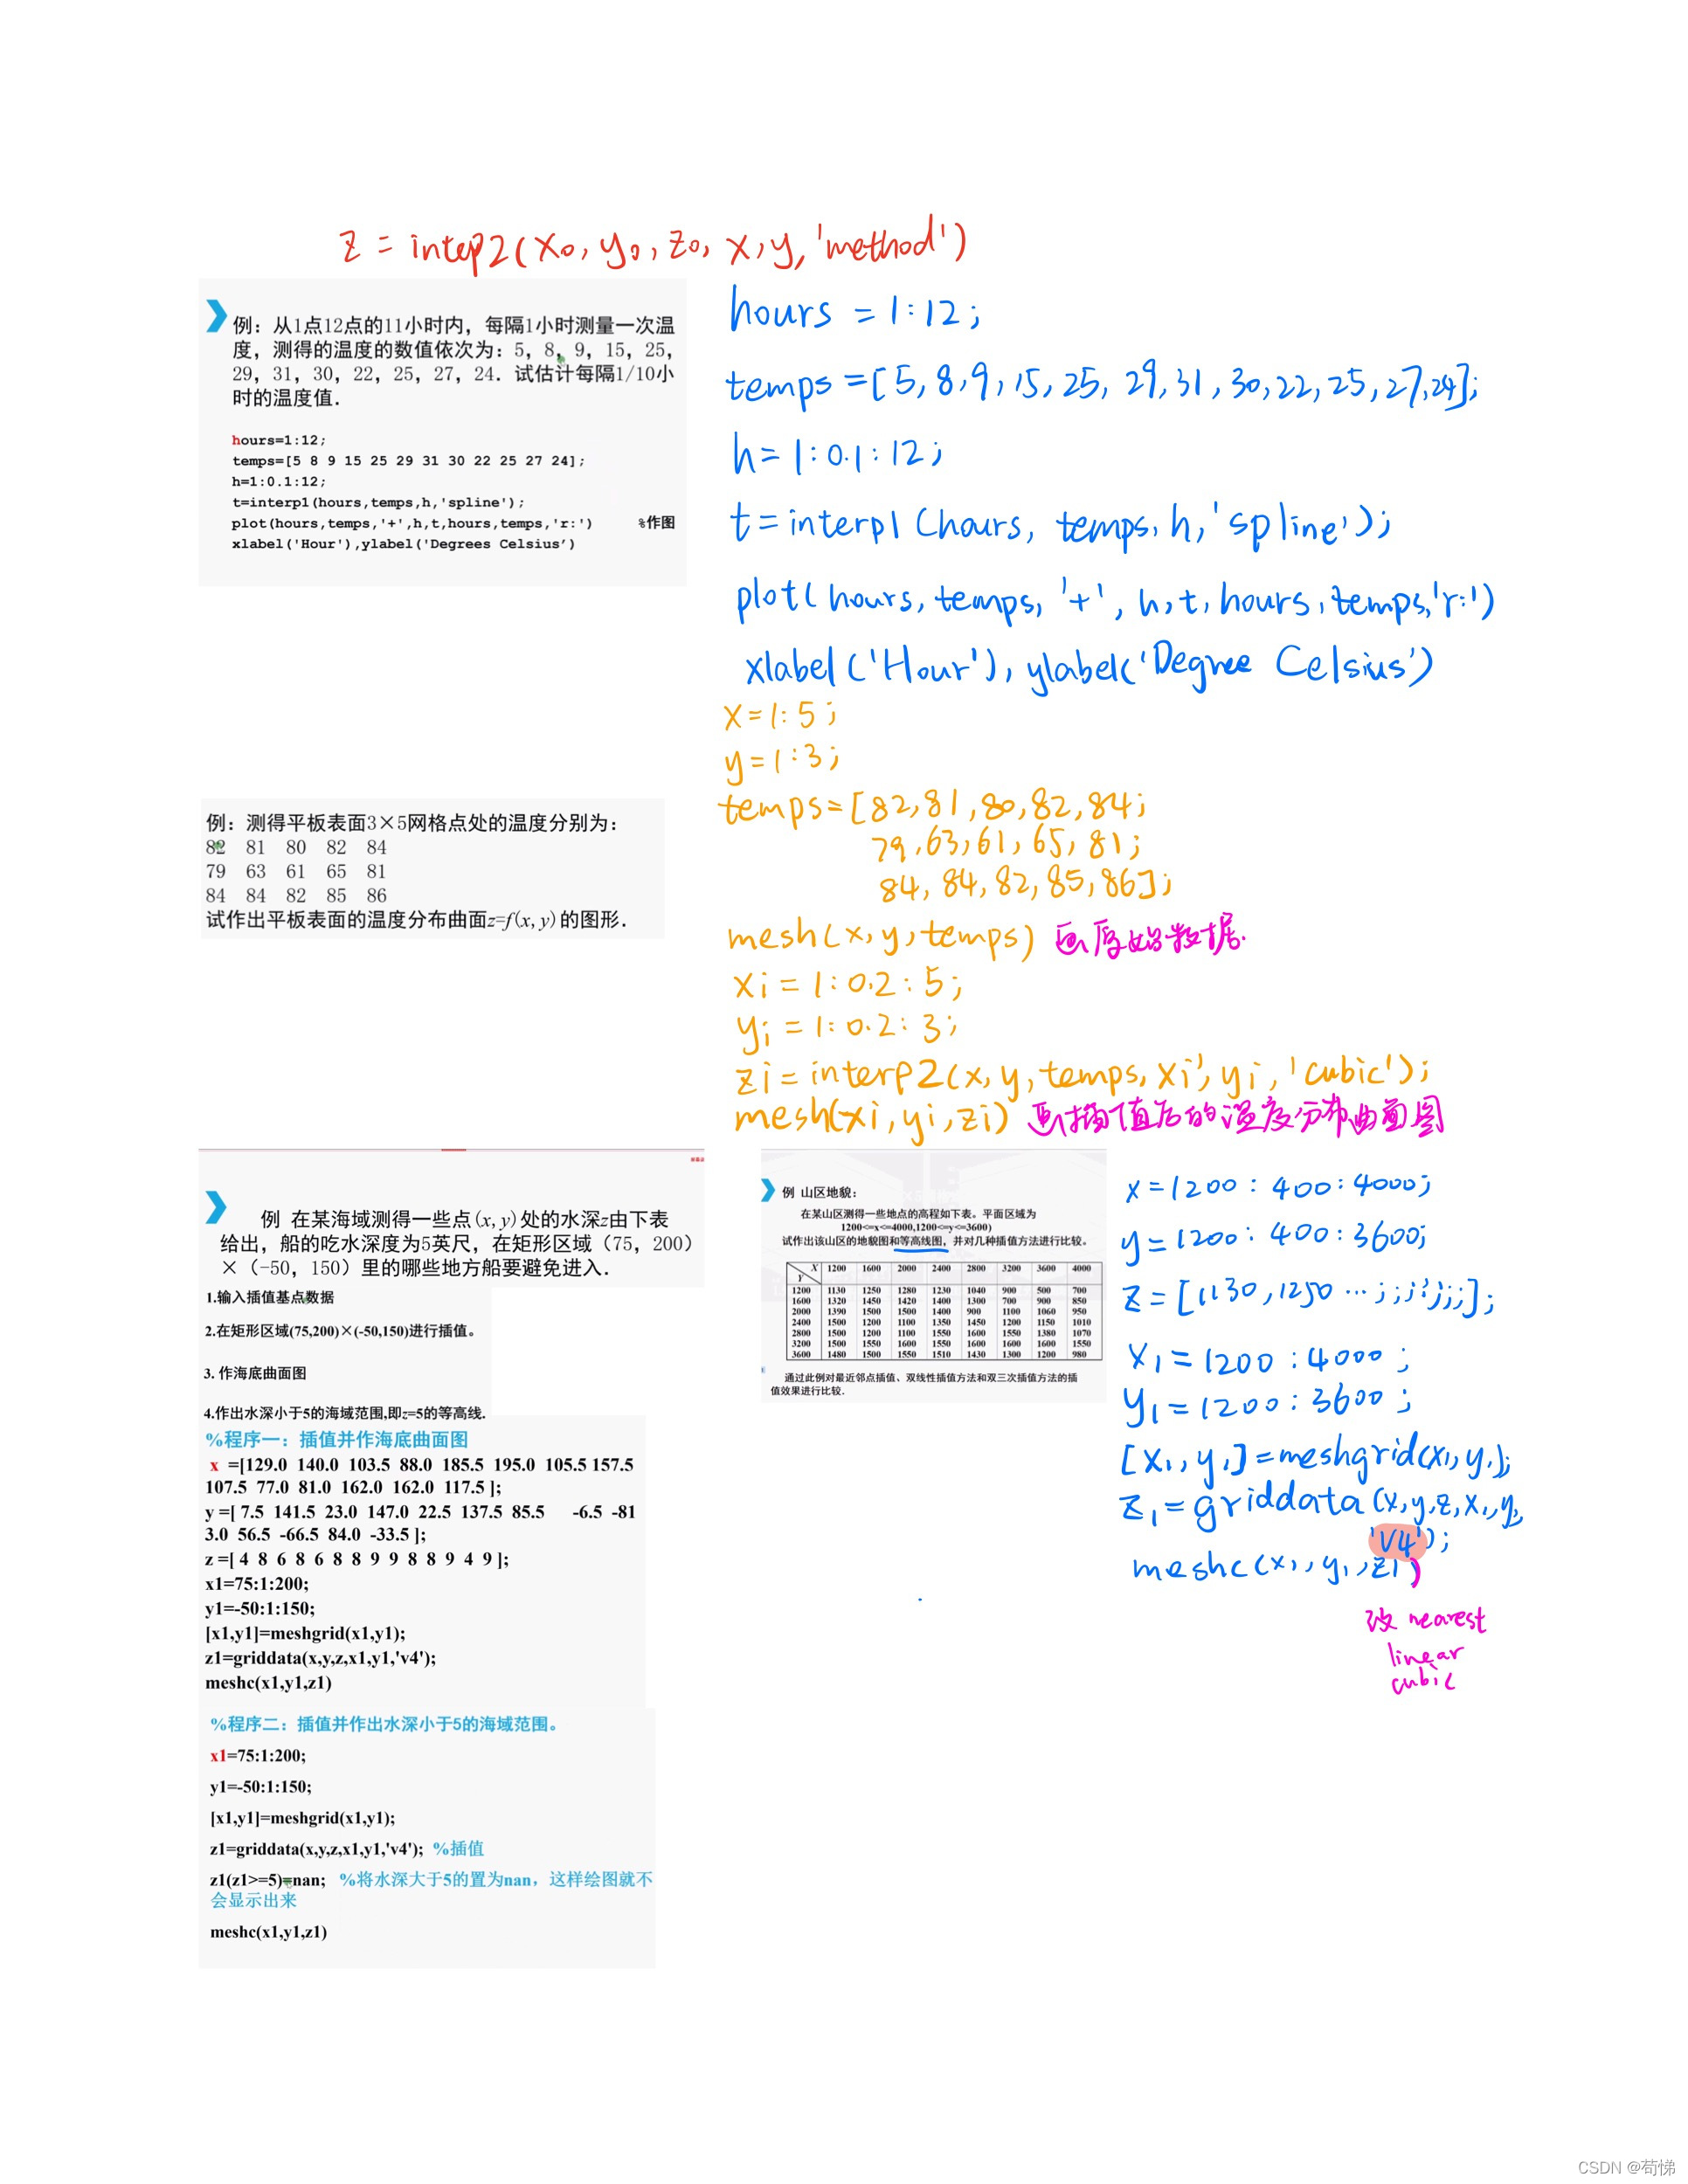 z = intep2(x0, y0, z0, x, y, 'method')
例：从1点12点的11小时内，每隔1小时测量一次温
度，测得的温度的数值依次为：5，8，9，15，25，
29，31，30，22，25，27，24．试估计每隔1/10小
时的温度值．
hours=1:12;
temps=[5 8 9 15 25 29 31 30 22 25 27 24];
h=1:0.1:12;
t=interp1(hours,temps,h,'spline');
plot(hours,temps,'+',h,t,hours,temps,'r:') %作图
xlabel('Hour'),ylabel('Degrees Celsius’)
hours = 1:12;
temps =[5, 8, 9, 15, 25, 29, 31, 30, 22, 25, 27, 24];
h= 1:0.1:12;
t = interp1 (hours, temps, h, 'spline');
plot( hours, temps, '+', h, t, hours, temps, 'r:')
xlabel ('Hour'), ylabel('Degree Celsius')
例：测得平板表面3×5网格点处的温度分别为：
82 81 80 82 84
79 63 61 65 81
84 84 82 85 86
试作出平板表面的温度分布曲面z=f(x,y)的图形．
x=1:5;
y=1:3;
temps=[82,81,80,82,84;
79,63,61,65,81;
84,84,82,85,86];
mesh(x,y,temps) 画原始数据.
xi = 1:0.2:5;
yi = 1:0.2:3;
zi = interp2(x,y,temps,xi',yi,'cubic');
mesh(xi,yi,zi) 画插值后的温度分布曲面图
例 在某海域测得一些点(x,y)处的水深z由下表
给出，船的吃水深度为5英尺，在矩形区域（75，200）
×（-50，150）里的哪些地方船要避免进入．
1.输入插值基点数据
2.在矩形区域(75,200)×(-50,150)进行插值。
3. 作海底曲面图
4.作出水深小于5的海域范围,即z=5的等高线.
%程序一：插值并作海底曲面图
x =[129.0 140.0 103.5 88.0 185.5 195.0 105.5 157.5
107.5 77.0 81.0 162.0 162.0 117.5 ];
y =[ 7.5 141.5 23.0 147.0 22.5 137.5 85.5 -6.5 -81
3.0 56.5 -66.5 84.0 -33.5 ];
z =[ 4 8 6 8 6 8 8 9 9 8 8 9 4 9 ];
x1=75:1:200;
y1=-50:1:150;
[x1,y1]=meshgrid(x1,y1);
z1=griddata(x,y,z,x1,y1,'v4');
meshc(x1,y1,z1)
%程序二：插值并作出水深小于5的海域范围。
x1=75:1:200;
y1=-50:1:150;
[x1,y1]=meshgrid(x1,y1);
z1=griddata(x,y,z,x1,y1,'v4'); %插值
z1(z1>=5)=nan; %将水深大于5的置为nan，这样绘图就不
会显示出来
meshc(x1,y1,z1)
例 山区地貌：
在某山区测得一些地点的高程如下表。平面区域为
1200<=x<=4000,1200<=y<=3600)
试作出该山区的地貌图和等高线图，并对几种插值方法进行比较。
X 1200 1600 2000 2400 2800 3200 3600 4000
Y
1200 1130 1250 1280 1230 1040 900 500 700
1600 1320 1450 1420 1400 1300 700 900 850
2000 1390 1500 1500 1400 900 1100 1060 950
2400 1500 1200 1100 1350 1450 1200 1150 1010
2800 1500 1200 1100 1550 1600 1550 1380 1070
3200 1500 1550 1600 1550 1600 1600 1600 1550
3600 1480 1500 1550 1510 1430 1300 1200 980
通过此例对最近邻点插值、双线性插值方法和双三次插值方法的插
值效果进行比较.
x=1200:400:4000;
y=1200:400:3600;
z=[1130,1250 ...;;;;;;];
x1=1200:4000;
y1=1200:3600;
[x1,y1]=meshgrid(x1,y1);
z1=griddata(x,y,z,x1,y1,
'v4');
meshc(x1,y1,z1)
改 nearest
linear
cubic
CSDN @苟悌